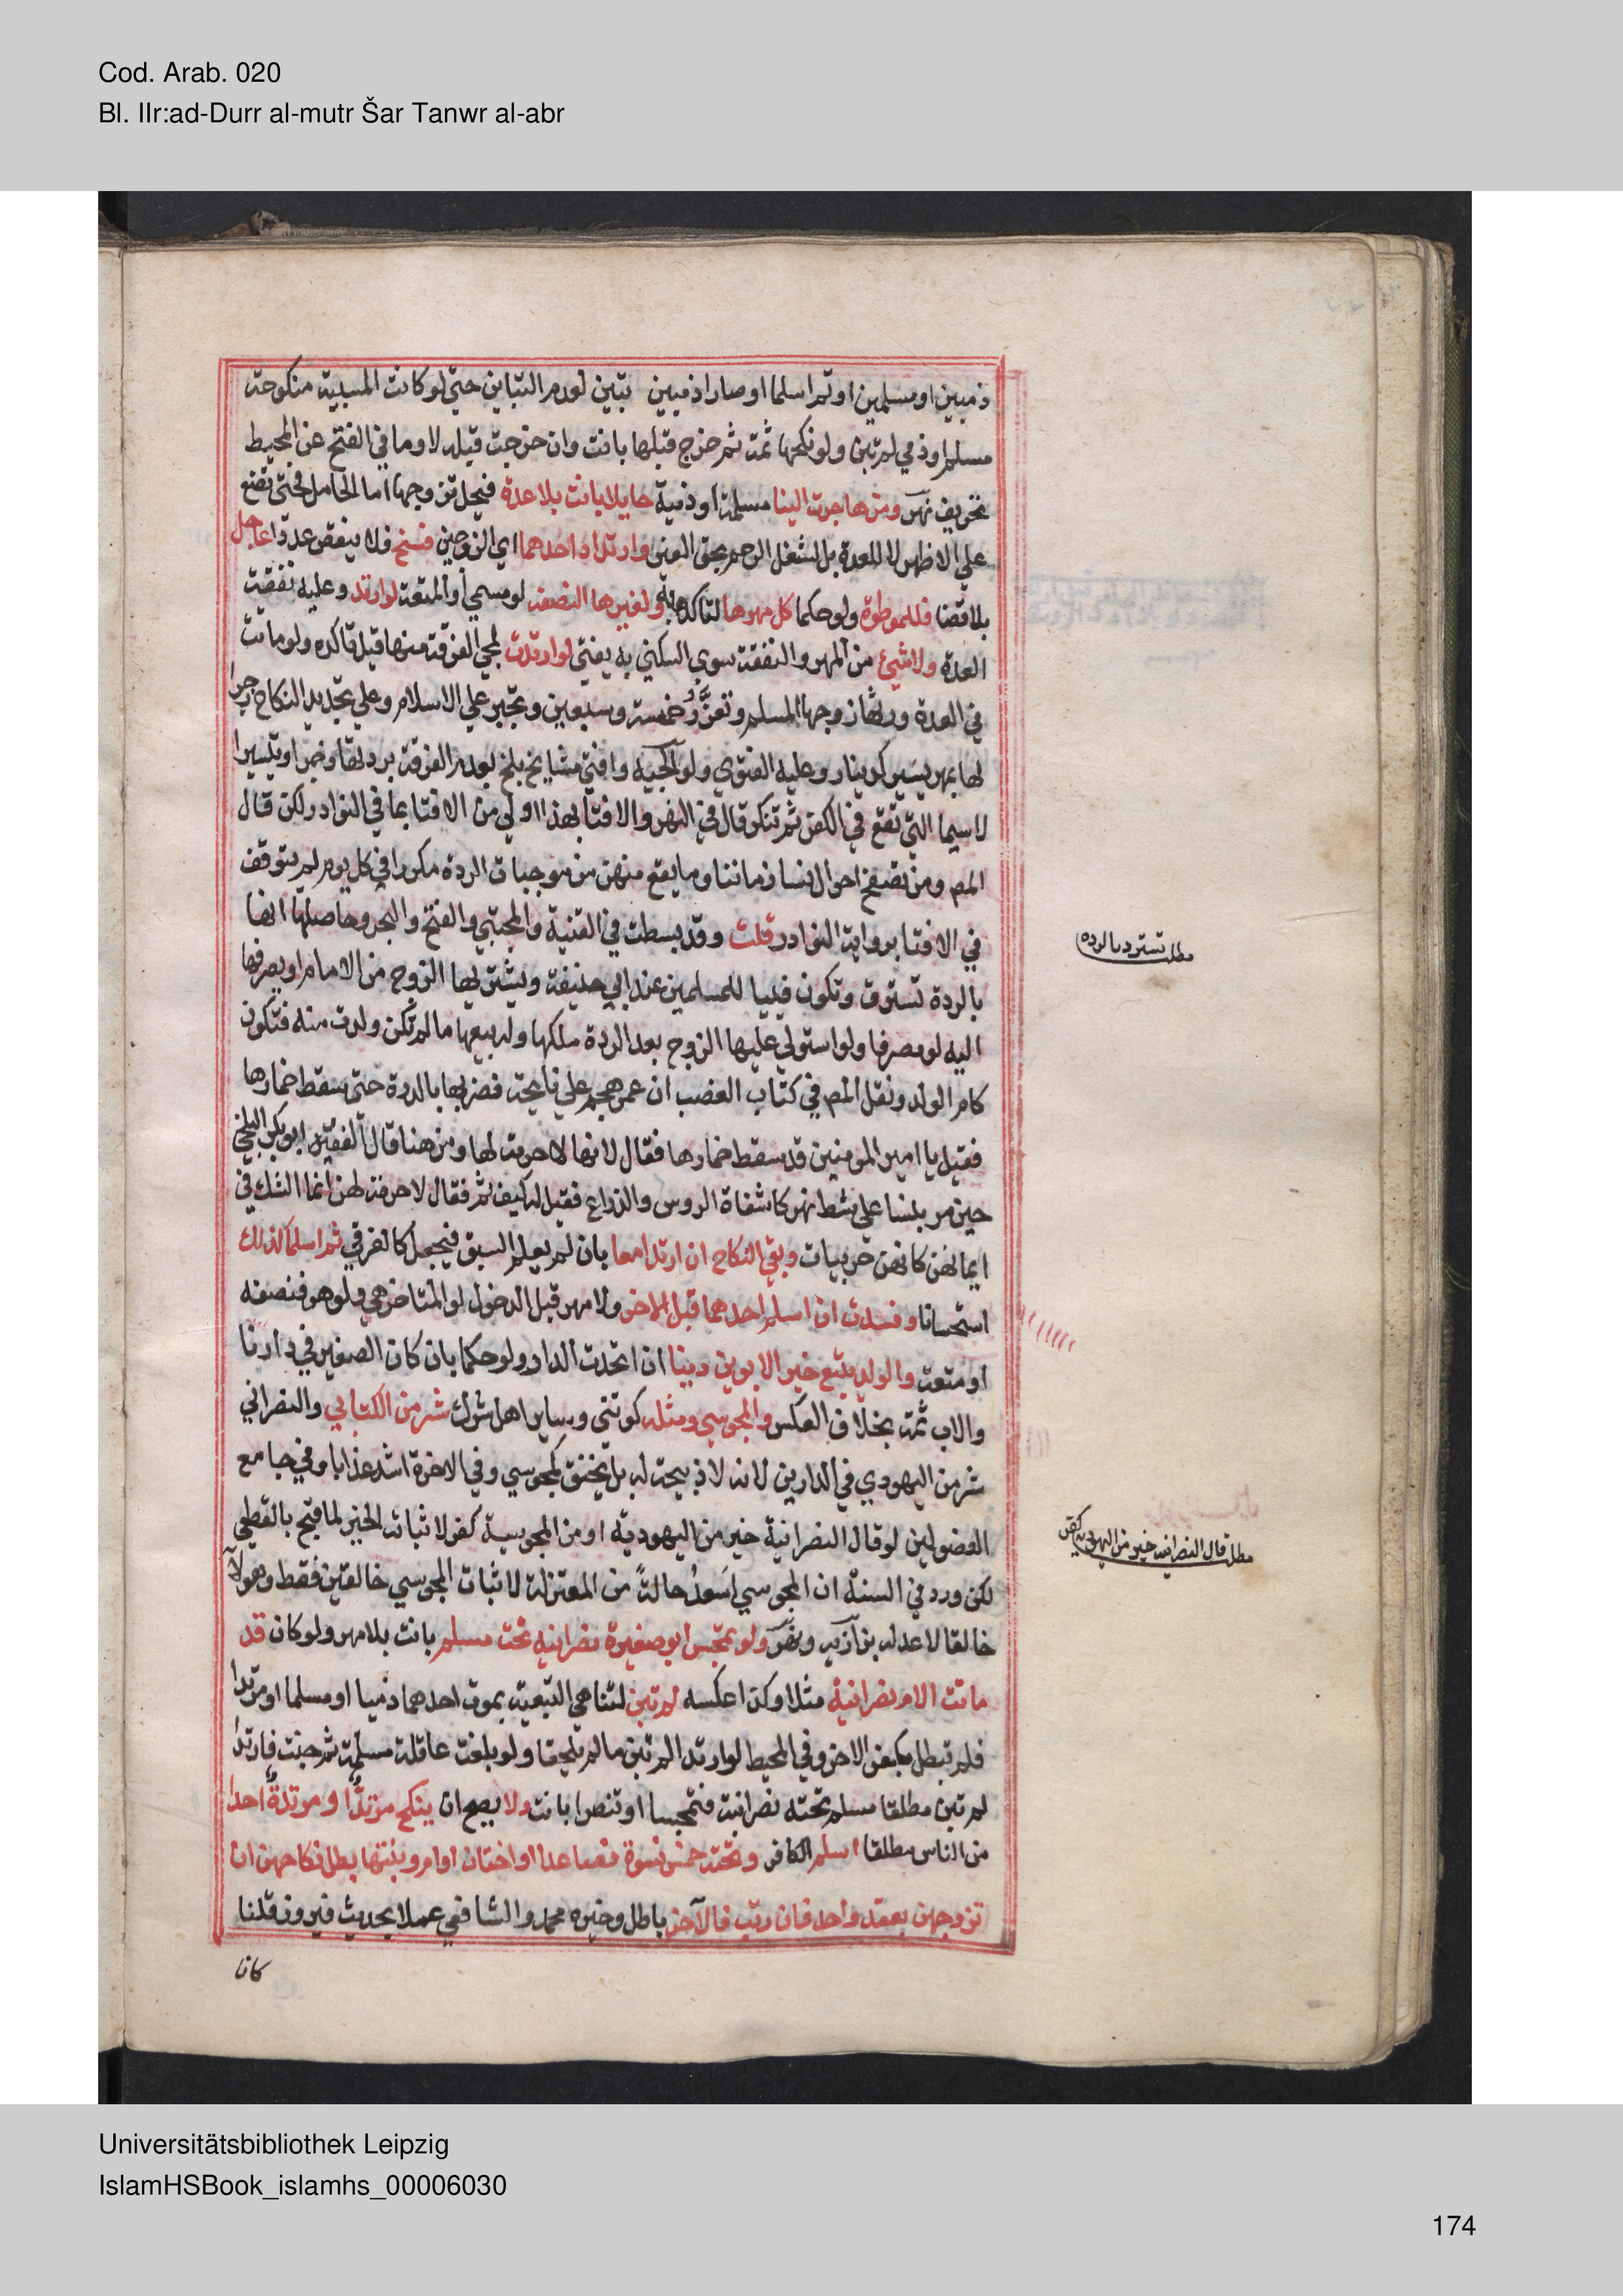 Cod. Arab. 020
Bl. IIr:ad-Durr al-mutr Šar Tanwr al-abr
ذميين او مسلمين او ثم اسلما او صارا ذميين تبين لعدم التباين حتي لو كانت المسبية منكوحة
مسلم او ذمي لم تبن ولو نكحها ثمة ثم خرج قبلها بانت وان خرجت قبله لا وما في الفتح عن المحيط
تحريف نهر ومن هاجرت الينا مسلمة او ذمية حايلا بانت بلا عدة فيحل تزوجها اما الحامل فحتي تضع
علي الاظهر لا للعدة بل لشغل الرحم بحق الغير وارتداد احدهما اي الزوجين فسخ فلا ينقص عددا عاجل
بلا قضا فللموطوة ولو حكما كل مهرها لتاكده به ولغيرها النصف لو مسمي او المتعة لو ارتد وعليه نفقة
العدة ولا شيئ من المهر والنفقة سوي السكني به يفتي لو ارتدت لمجي الفرقة منها قبل تاكده ولو ماتت
في العدة ورثها زوجها المسلم وتعزَّر خمسة وسبعين وتجبر علي الاسلام وعلي تجديد النكاح زجرا
لها بمهر يسير كدينار وعليه الفتوي ولوالجيه وافتي مشايخ بلخ بعدم الفرقة بردتها وخبرا وتيسيرا
لاسيما التي تقع في الكفر ثم تنكر قال في النهر والافتا بهذا اولي من الافتا بما في النوادر لكن قال
المص ومن تصفح احوال نسا زماننا وما يقع منهن من موجبات الردة مكررا في كل يوم لم يتوقف
في الافتا برواية النوادر قلت وقد بسطت في القنية والمجتبي والفتح والبحر وحاصلها انها
بالردة تسترق وتكون فييا للمسلمين عند ابي حنيفة ويشتريها الزوج من الامام او يصرفها
اليه لو مصرفا ولو استولي عليها الزوج بعد الردة ملكها وله بيعها ما لم تكن ولدت منه فتكون
كام الولد ونقل المص في كتاب الغصب ان عمر هجم علي نايحة فضربها بالدرة حتي سقط خمارها
فقيل يا امير المومنين قد سقط خمارها فقال لانها لا حرمة لها ومن هنا قال الفقيه ابو بكر البلخي
حين مر بنسا علي شط نهر كاشفاة الروس والذراع فقيل له كيف تمر فقال لا حرمة لهن انما الشك في
ايمانهن كانهن حربيات وبقي النكاح ان ارتدا معا بان لم يعلم السبق فيجعل كالغرقي ثم اسلما كذلك
استحسانا وفسدت ان اسلم احدهما قبل الاخر ولا مهر قبل الدخول لو المتاخر هي ولو هو فنصفه
او متعة والولد يتبع خير الابوين دينا ان اتحدت الدار ولو حكما بان كان الصغير في دارنا
والاب ثمة بخلاف العكس والمجوسي ومثله كوثني وساير اهل شرك شر من الكتابي والنصراني
شر من اليهودي في الدارين لانه لا ذبيحة له بل يخنق كمجوسي وفي الاخرة اشد عذابا وفي جامع
الفصولين لو قال النصرانية خير من اليهودية او من المجوسية كفر لاثباته الخير لما قبح بالقطعي
لكن ورد في السنة ان المجوسي اسعدُ حالةً من المعتزلة لاثبات المجوسي خالقين فقط وهولآ
خالقا لا عدله بزازيه ونهر ولو تمجس ابو صغيرة نصرانيه تحت مسلم بانت بلا مهر ولو كان قد
ماتت الام نصرانية مثلا وكذا عكسه لم تبن لتناهي التبعية بموت احدهما ذميا او مسلما او مرتدا
فلم تبطل بكفر الاخر وفي المحيط لو ارتدا لم تبن ما لم تلحقا ولو بلغت عاقلة مسلمة ثم جنت فارتدا
لم تبن مطلقا مسلم تحته نصرانية فتمجسا او تنصرا بانت ولا يصح ان ينكح مرتدٌّا و مرتدةٌ احدا
من الناس مطلقا اسلم الكافر وتحته خمس نسوة فصاعدا او اختان او ام وبنتها بطل نكاحهن ان
تزوجهن بعقد واحد فان رتب فالآخر باطل وخيره محمد والشافعي عملا بحديث فيروز قلنا
كانا
مطلب تسترد بالرده
مطلب قال النصرانيه خير من اليهوديه كفر
Universitätsbibliothek Leipzig
IslamHSBook_islamhs_00006030
174